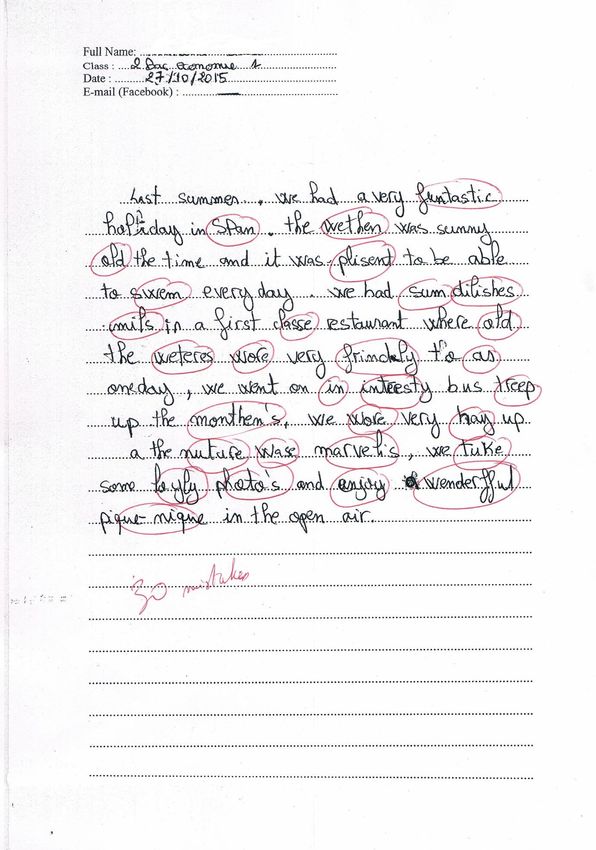 Full Name:
Class : 2 Bac economie 1
Date : 27/10/2015
E-mail (Facebook) :
Last summer, we had a very funtastic
holiday in Span. the wethen was sunny
old the time and it was plisent to be able
to swem every day. we had sum dilishes
mils in a first classe restaurant where old
the weteres wore very frindely to as
oneday, we went on in inteesty bus treep
up the monthen's, we wore very hay up
a the nuture wase marvels, we tuke
some loyfly photo's and enjoy wenderfful
pique-nique in the open air.
30 mistakes